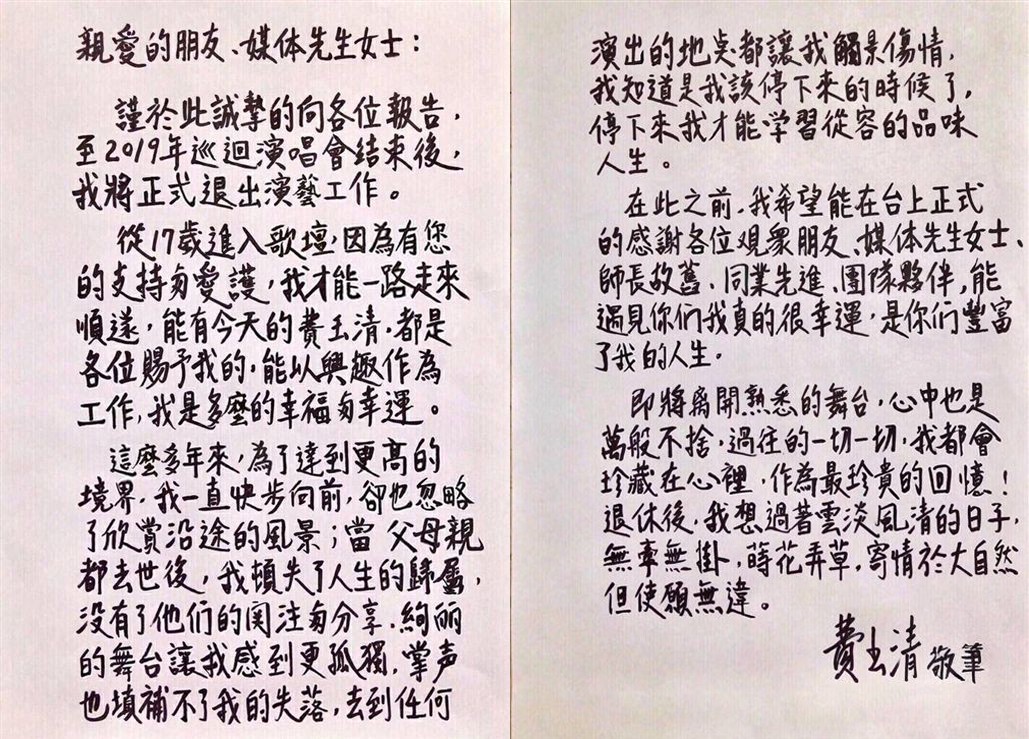 親愛的朋友、媒体先生女士：
謹於此誠摯的向各位報告，
至2019年巡迴演唱會結束後，
我將正式退出演藝工作。
從17歲進入歌壇，因為有您
的支持與愛護，我才能一路走來
順遂，能有今天的費玉清，都是
各位賜予我的，能以興趣作為
工作，我是多麼的幸福與幸運。
這麼多年來，為了達到更高的
境界，我一直快步向前，卻也忽略
了欣賞沿途的風景；當父母親
都去世後，我頓失了人生的歸屬，
没有了他们的関注與分享，絢丽
的舞台讓我感到更孤獨，掌声
也填補不了我的失落，去到任何
演出的地點都讓我觸景傷情，
我知道是我該停下來的時候了，
停下來我才能学習從容的品味
人生。
在此之前，我希望能在台上正式
的感謝各位观眾朋友、媒体先生女士、
師長故舊、同業先進、團隊夥伴，能
遇見你们我真的很幸運，是你们豐富
了我的人生。
即將离開熟悉的舞台，心中也是
萬般不捨，過往的一切一切，我都會
珍藏在心裡，作為最珍貴的回憶！
退休後，我想過著雲淡風清的日子，
無牽無掛，蒔花弄草，寄情於大自然
但使願無違。
費玉清 敬筆